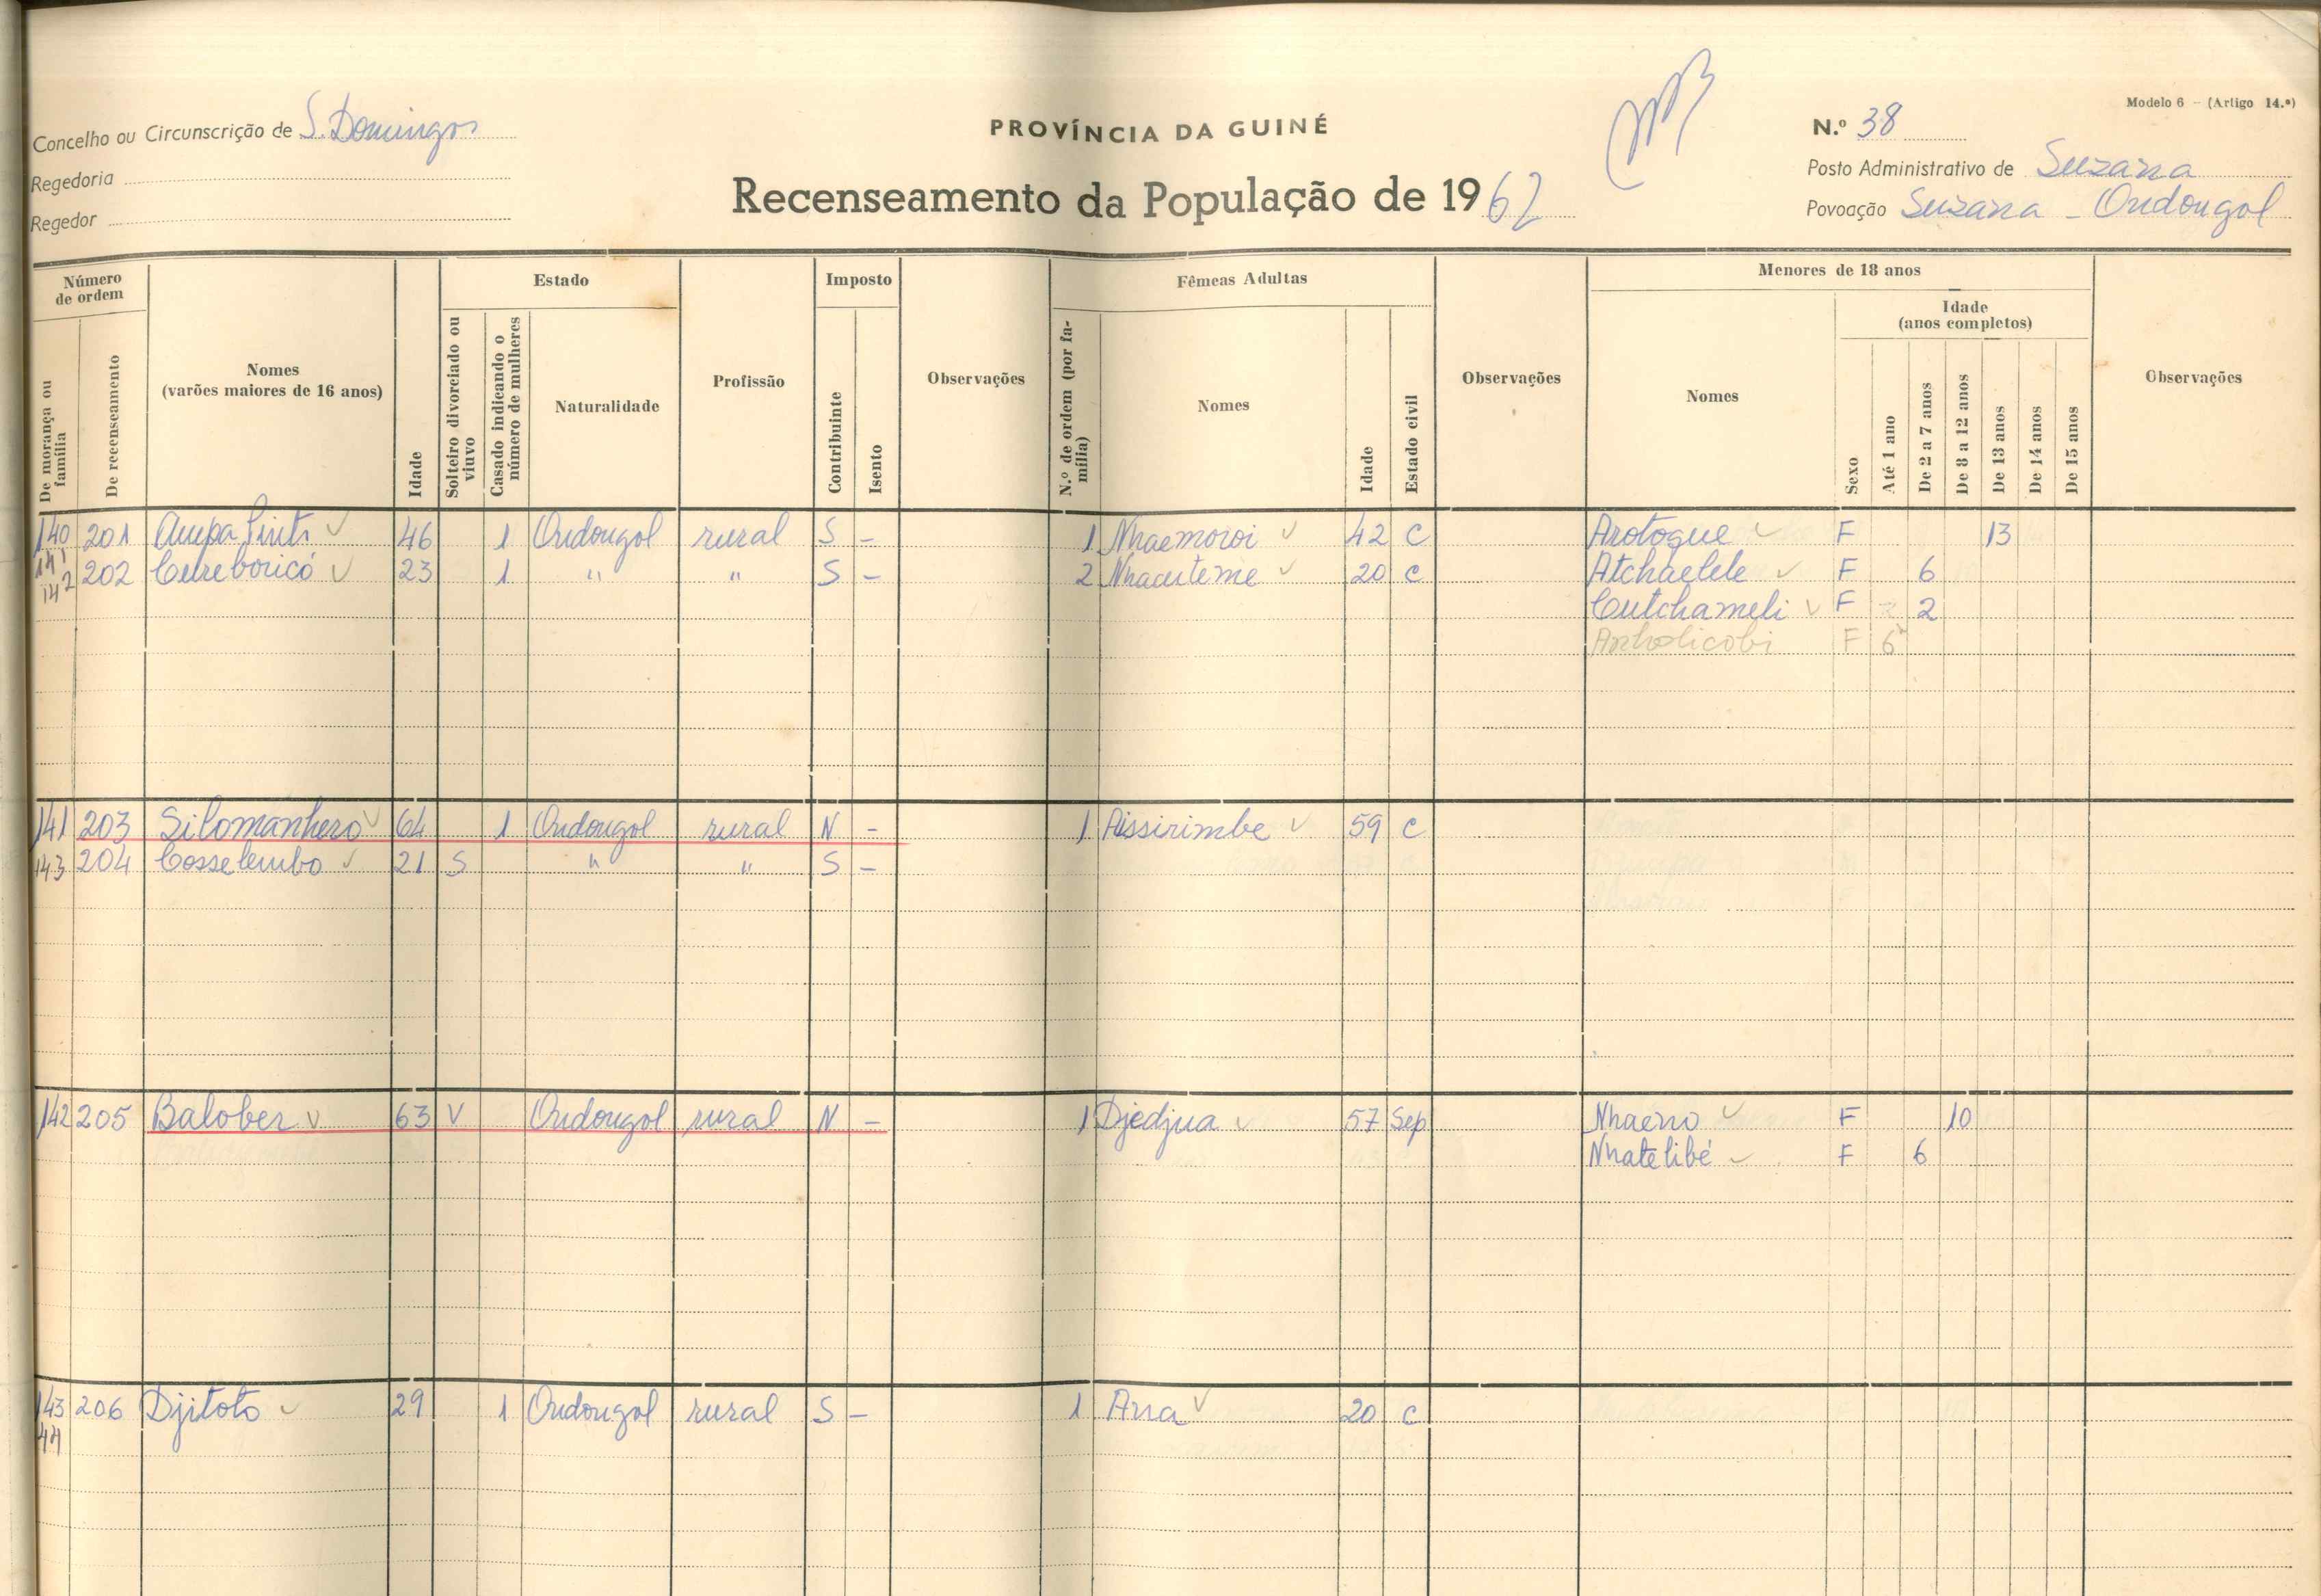 Modelo 6 — (Artigo 14.º)
Concelho ou Circunscrição de S. Domingos
PROVÍNCIA DA GUINÉ
N.º 38
Regedoria
Posto Administrativo de Suzana
Regedor
Recenseamento da População de 1962
Povoação Suzana - Ondongol
Número de ordem
De morança ou família
De recenseamento
Nomes
(varões maiores de 16 anos)
Idade
Estado
Solteiro divorciado ou viuvo
Casado indicando o número de mulheres
Naturalidade
Profissão
Imposto
Contribuinte
Isento
Observações
Fêmeas Adultas
N.º de ordem (por família)
Nomes
Idade
Estado civil
Observações
Menores de 18 anos
Nomes
Sexo
Idade
(anos completos)
Até 1 ano
De 2 a 7 anos
De 8 a 12 anos
De 13 anos
De 14 anos
De 15 anos
Observações
140 201 46 1 Ondongol rural S - 1 Nhaemoroi 42 C Arotogue F 13
141
142 202 23 1 " " S - 2 Nhacuteme 20 C Atchaelele F 6
Cutchameli F 2
F 6
141 203 Silomanhero 64 1 Ondongol rural N - 1 Aissirimbe 59 C
143 204 Cosselembo 21 S " " S -
142 205 Balober 63 V Ondongol rural N - 1 Djedjua 57 Sep Nhaeno F 10
Nhatelibé F 6
143 206 Djitoto 29 1 Ondongol rural S - 1 Ana 20 C
44